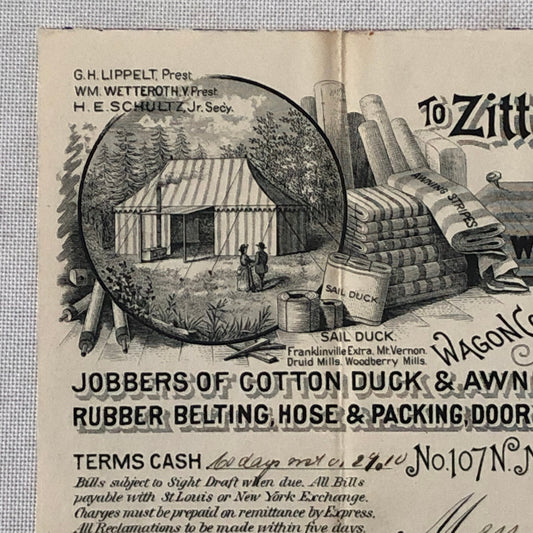 G.H. LIPPELT, Prest
WM. WETTEROTH, V. Prest
H. E. SCHULTZ, Jr. Secy.
TO Zitt
AWNING STRIPES
W
SAIL DUCK
SAIL DUCK
Franklinville Extra. Mt. Vernon.
Druid Mills. Woodberry Mills.
WAGON CO
JOBBERS OF COTTON DUCK & AWN
RUBBER BELTING, HOSE & PACKING, DOOR
TERMS CASH 60 days
No. 107 N.
Bills subject to Sight Draft when due. All Bills
payable with St. Louis or New York Exchange.
Charges must be prepaid on remittance by Express.
All Reclamations to be made within five days.